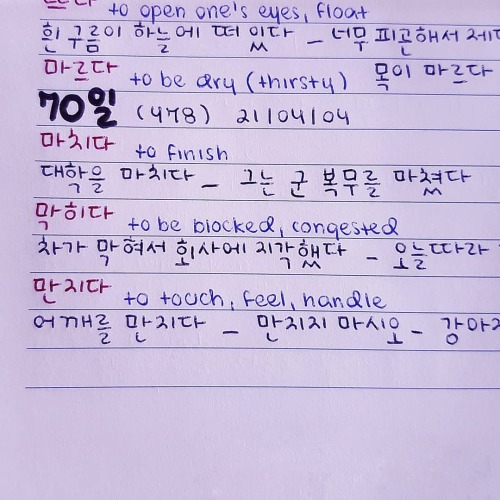 to open one's eyes, float
흰 구름이 하늘에 떠 있다 – 너무 피곤해서
마르다 to be dry (thirsty) 목이 마르다
70일 (478) 21/04/04
마치다 to finish
대학을 마치다 – 그는 군 복무를 마쳤다
막히다 to be blocked, congested
차가 막혀서 회사에 지각했다 – 오늘따라
만지다 to touch, feel, handle
어깨를 만지다 – 만지지 마시오 –